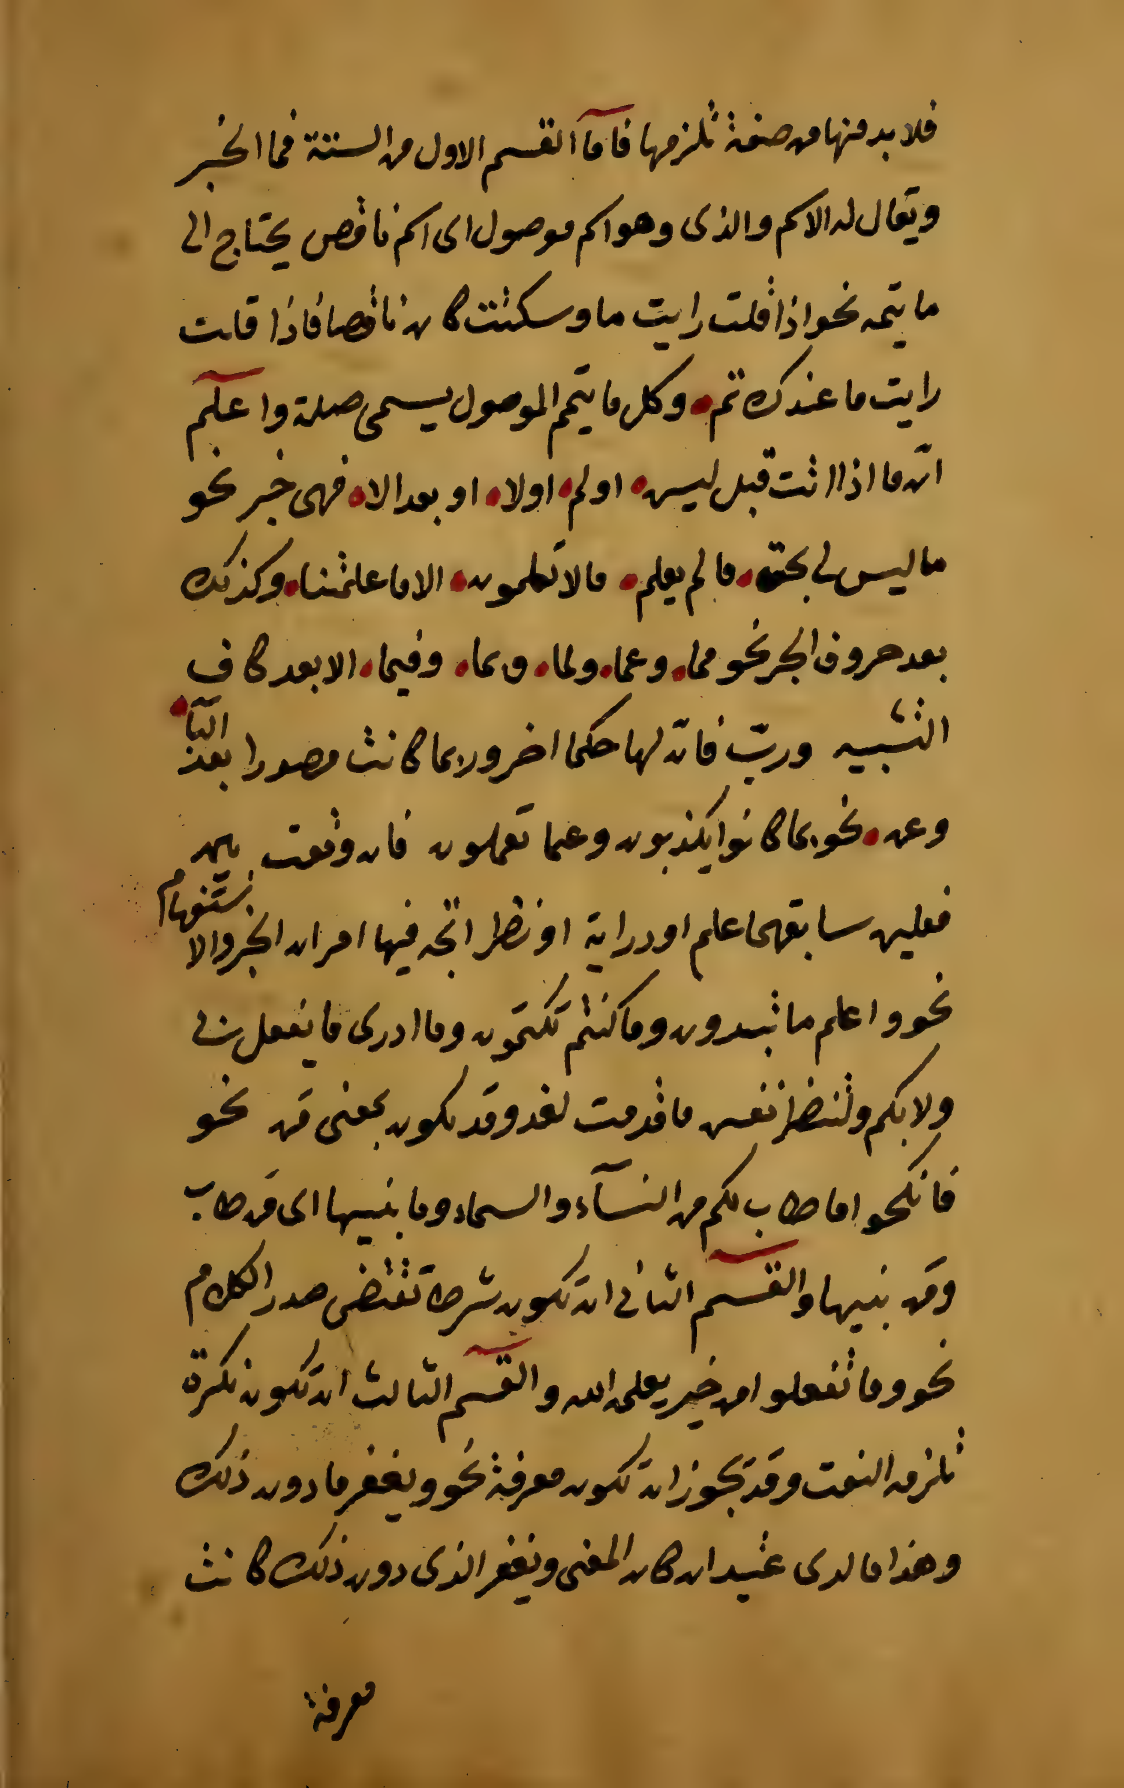 فلا بد منها من صفة تلزمها فاما القسم الاول من الستة فما الخبر
ويقال له الاسم والذى وهو اسم موصول اى اسم ناقص يحتاج الى
ما يتمه نحو اذا قلت رايت ما وسكتت كان ناقصا فاذا قلت
رايت ما عندك تم وكل ما يتمم الموصول يسمى صلة واعلم
ان ما اذا اتت قبل ليس او لم او لا او بعد الا فهى خبر نحو
ما ليس لى بحق ما لم يعلم ما لا تعلمون الا ما علمتنا وكذلك
بعد حروف الجر نحو مما وعما ولما وبما وفيما الا بعد كاف
التشبيه ورب فان لها حكما اخر وربما كانت مصدرا بعد الباء
وعن نحو بما كانوا يكذبون وعما تعملون فان وقعت بين
فعلين سابقهما علم او دراية او نظر اتجه فيها امران الخبر والاستفهام
نحو واعلم ما تبدون وما كنتم تكتمون وما ادرى ما يفعل بى
ولا بكم ولتنظر نفس ما قدمت لغد وقد يكون بمعنى من نحو
فانكحوا ما طاب لكم من النسآء والسماء وما بنيها اى من طاب
ومن بنيها والقسم الثانى ان تكون شرطا تقتضى صدر الكلام
نحو وما تفعلوا من خير يعلمه الله والقسم الثالث ان تكون نكرة
تلزمه النعت وقد تجوز ان تكون معرفة نحو ويغفر ما دون ذلك
وهذا ما لدى عتيد ان كان المعنى ويغفر الذى دون ذلك كانت
معرفة